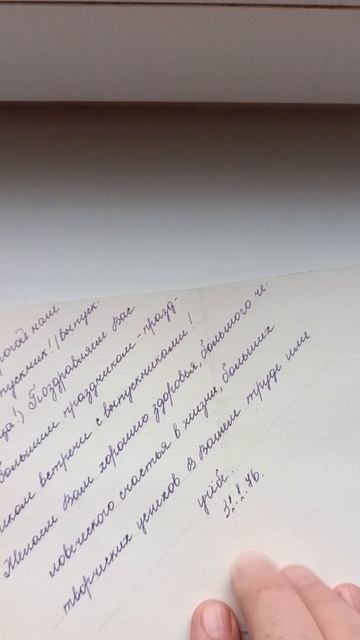 рогой наш
пускник! (выпуск-
ца!) Поздравляем Вас
большим праздником - празд-
иком встречи с выпускниками!
Желаем Вам хорошего здоровья, большого че-
ловеческого счастья в жизни, больших
творческих успехов в Вашем труде или
учёбе.